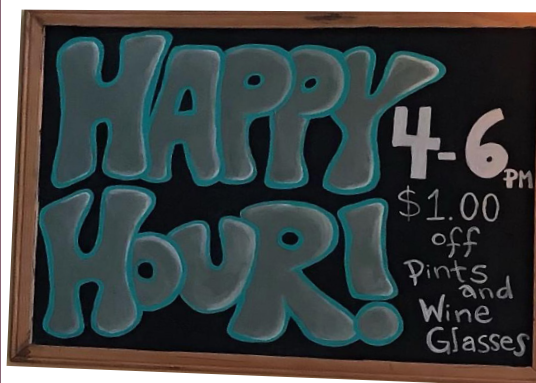 HAPPY
HOUR!
4-6 PM
$1.00
off
Pints
and
Wine
Glasses